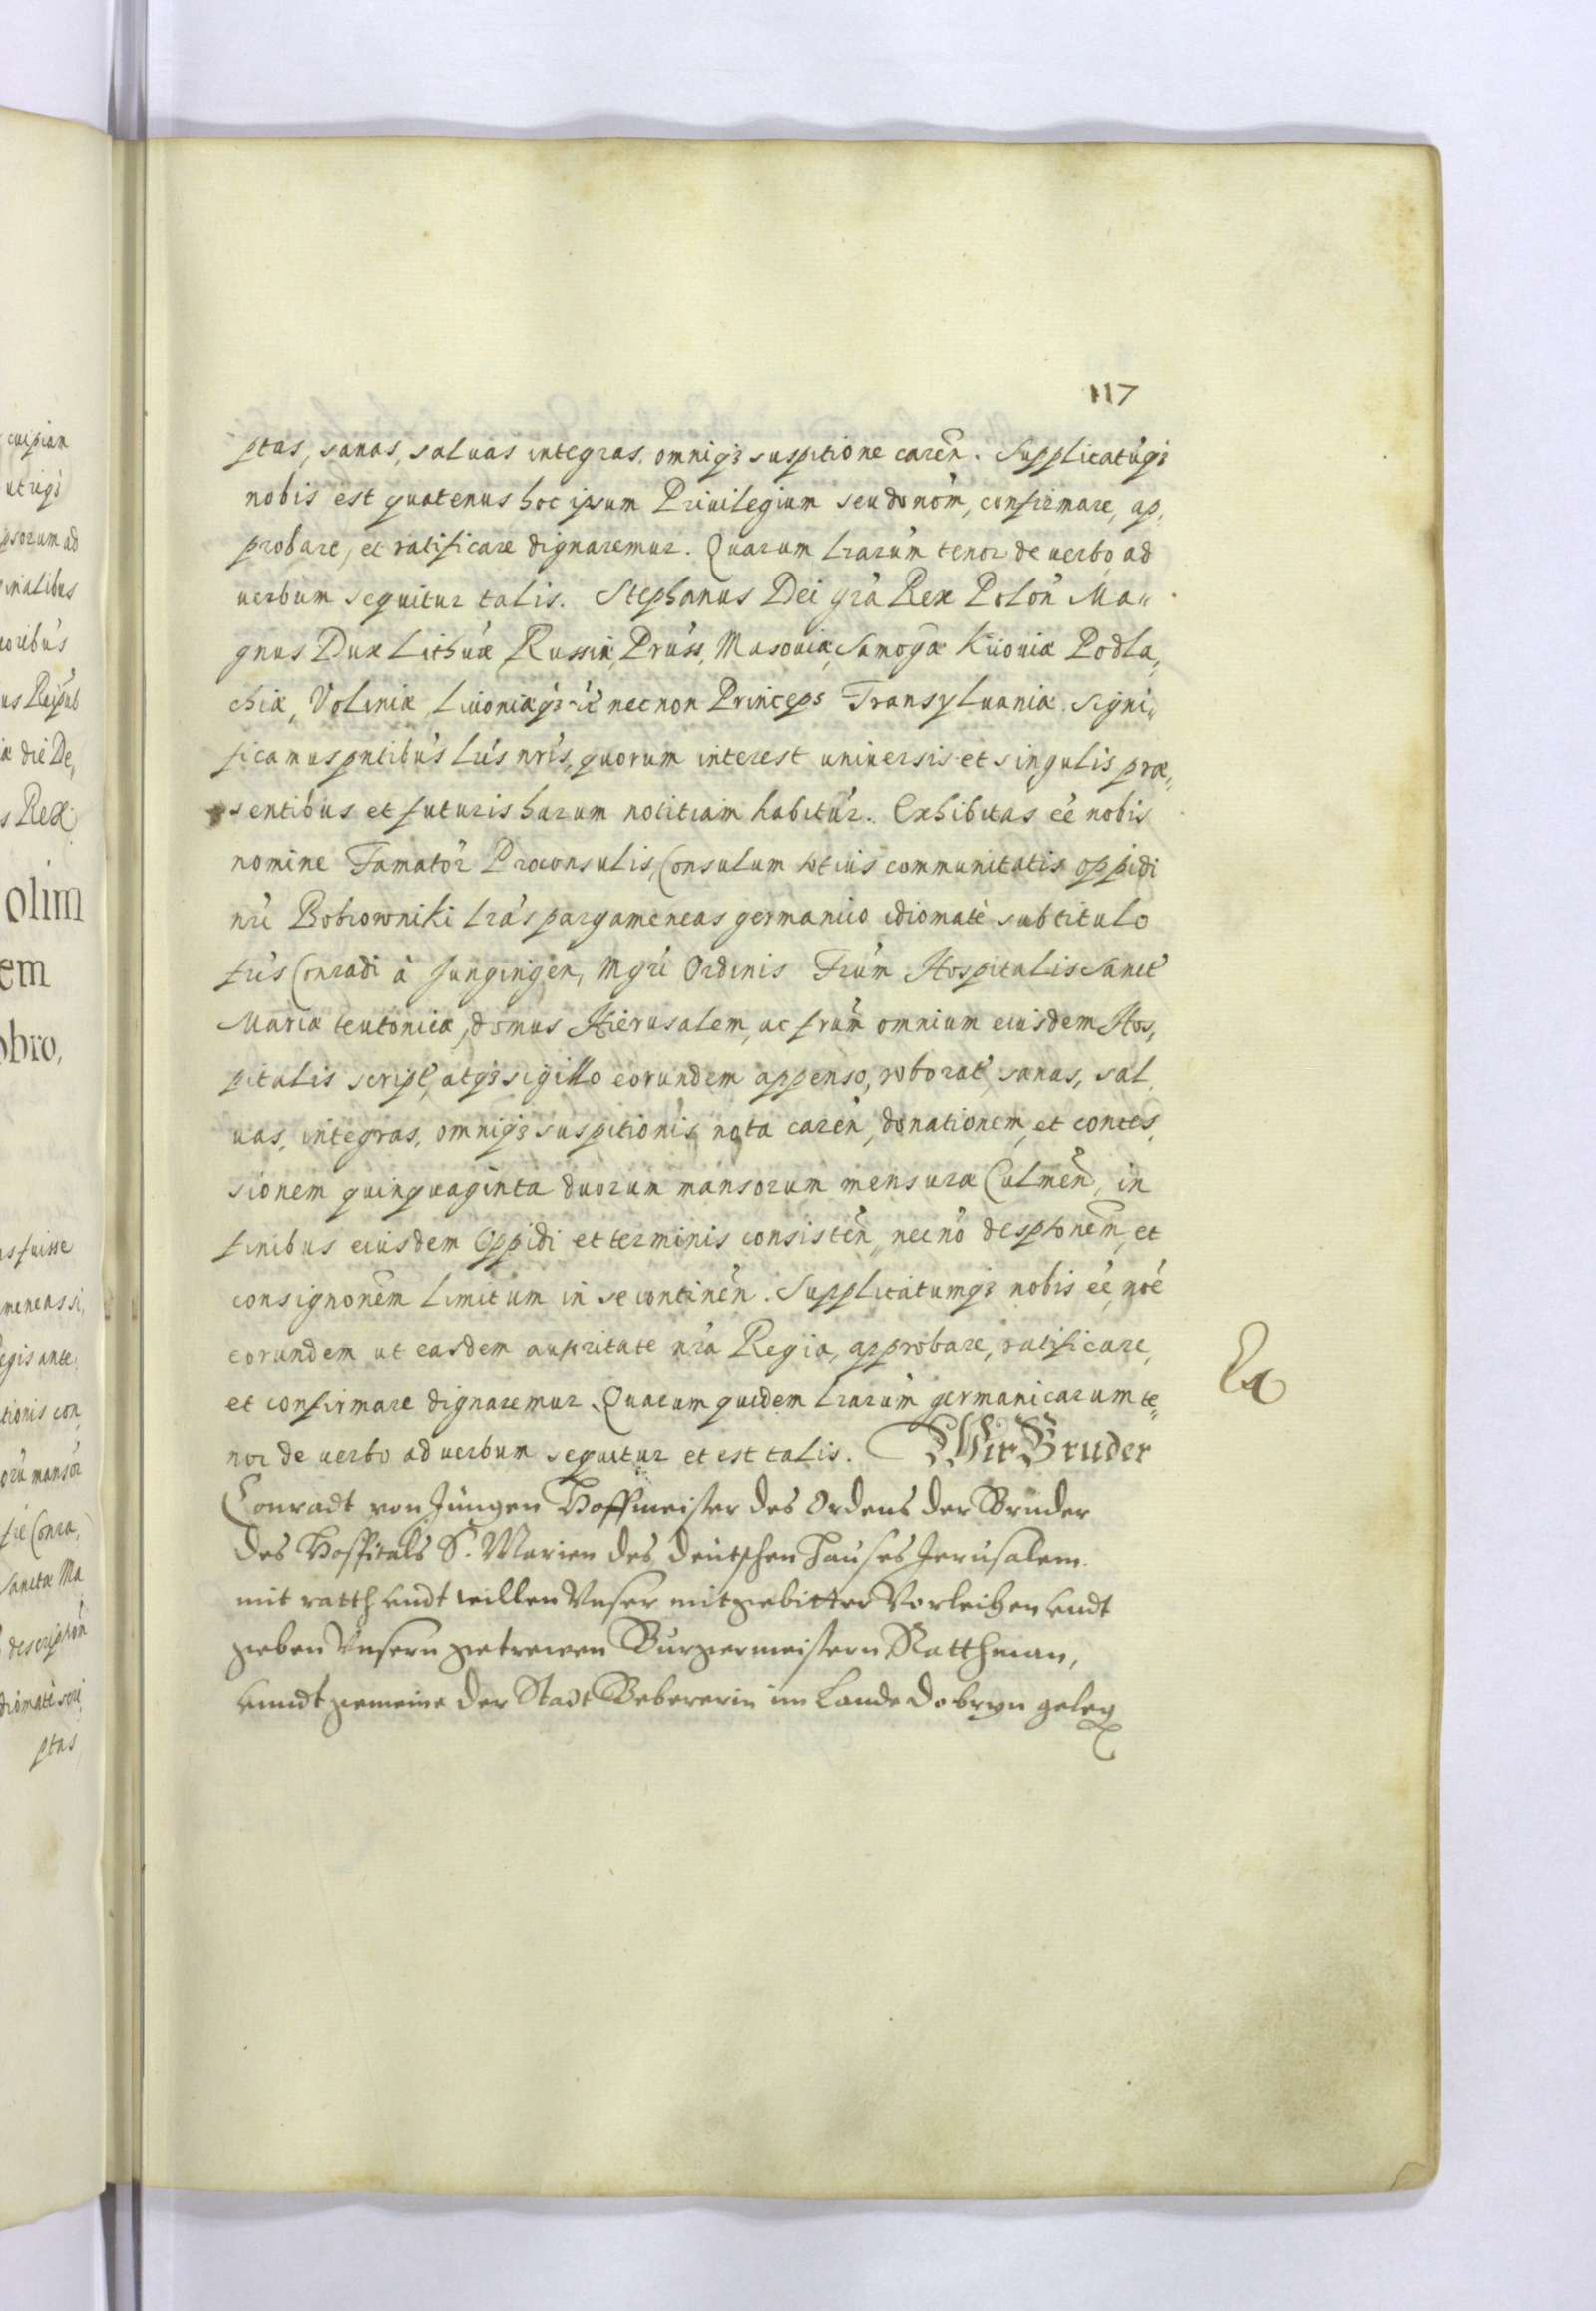 117
ptas, sanas, saluas integras, omniq3 suspitione caren̄. Supplicatu̇q3
nobis est quatenus hoc ipsum Priuilegium seu donōm, confirmare, ap,
probare, et ratificare dignaremur. Quarum Lrarūm tenor de uerbo ad
uerbum sequitur talis. Stephanus Dei gr̄a Rex Polon̄ Ma„
gnus Dux Lithuæ Russiæ, Prūss, Masouiæ, Samogæ Kiiouiæ Podla,
chiæ, Voliniæ Liuoniæq3 ꝛc̄ nec non Princeps Transyluaniæ. Signi„
ficamus pn̄tibūs Lrīs nrīs, quorum interest uniuersis et singulis præ„
sentibus et futuris harum notitiam habitūr. Exhibitas eē nobis
nomine Famatōr Proconsulis, Consulum totius communitatis oppidi
nrī Bobrowniki Lrās pargameneas germanico idiomate sub titulo
frīs Conradi à Jungingen, Mgrī Ordinis Frūm Hospitalis Sanct̄
Mariæ teutonicæ, domus Hierusalem, ac frūm omnium eiusdem Hos,
pitalis script̄, atq3 sigillo eorundem appenso, roborat̄, sanas, sal,
uas, integras, omniq3 suspitionis nota caren̄, donationem, et conces,
sionem quinquaginta duorum mansorum mensuræ Culmen̄, in
finibus eiusdem Oppidi et terminis consisten̄, necnō desptonēm, et
consignonēm Limitum in se continen̄. Supplicatumq3 nobis eē, noē
eorundem ut easdem autritate nrā Regia, approbare, ratificare,
et confirmare dignaremur. Quarum quidem Lrarūm germanicarum te„
nor de uerbo ad uerbum sequitur et est talis. Wir Bruder
Conradt von Jungen Hoffmeister des Ordens der Brüder
des Hospitals S. Marien des deütschen Hauses Jerusalem.
mit ratth vndt willen Vnser mitgebitter Vorleihen vndt
geben Vnsern getrewen Burgermeistern Ratthman,
vnndt gemeine der Stadt Beberern im Lande Dobryn geleg